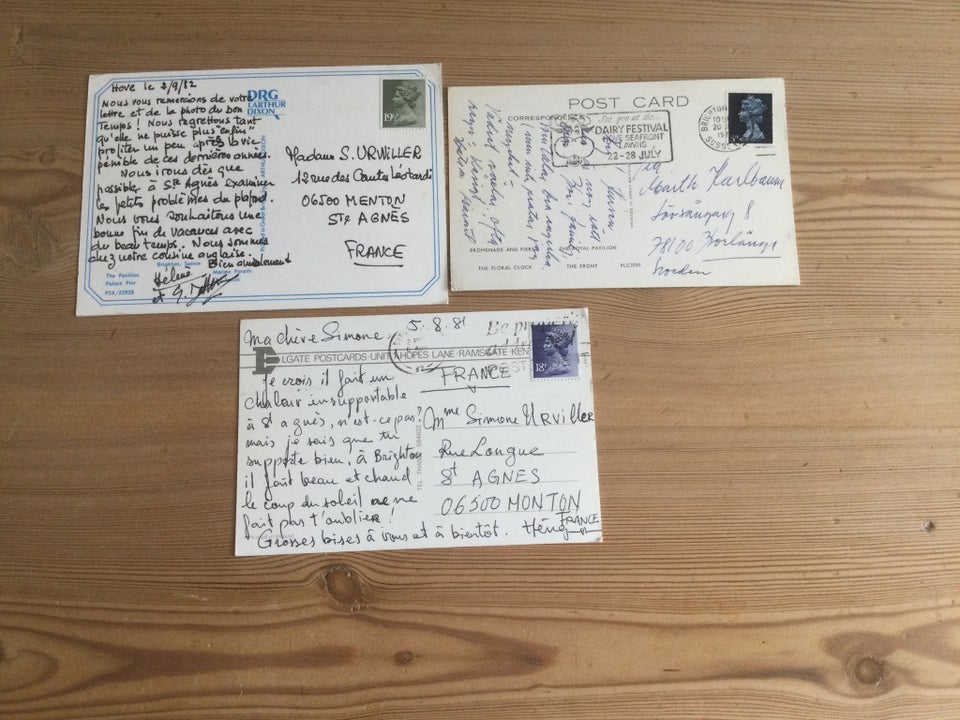 Hove le 2/9/82
Nous vous remercions de votre
lettre et de la photo du bon
Temps! Nous regrettons tant
qu'elle ne puisse plus "enfin"
profiter un peu après la vie
pénible de ces dernières années.
Nous irons dès que
possible à Ste Agnès examiner
les petits problèmes du plafond.
Nous vous souhaitons une
bonne fin de vacances avec
du beau temps. Nous sommes
chez notre cousine anglaise.
Bien amicalement
Hélène
et G.
DRG
LARTHUR
DIXON
Brighton, Sussex
The Pavilion
Marine Parade
Palace Pier
PSX/22928
19½P
Madame S. URWILLER
12 rue des Comtes Léotardi
06500 MENTON
STE AGNÈS
FRANCE
POST CARD
CORRESPONDENCE
See you at the...
DAIRY FESTIVAL
HOVE SEAFRONT
LAWNS
22-28 JULY
BRIGHTON
SUSSEX
Marth Karlbaum
78100 Borlänge
Sweden
PROMENADE AND PIER
THE ROYAL PAVILION
THE FLORAL CLOCK
THE FRONT
PLC3760
Ma chère Simone,
5.8.81
Be
ELGATE POSTCARDS UNIT HOPES LANE RAMSGATE KEN
TEL. THANET
18P
Je crois il fait un
chaleur insupportable
à St agnès, n'est-ce pas?
mais je sais que tu
supporte bien, à Brighton
il fait beau et chaud
le coup du soleil ne me
fait pas t'oublier!
Grosses bises à vous et à bientôt.
FRANCE
Mme Simone URViller
Rue Longue
St AGNES
06500 MONTON
FRANCE